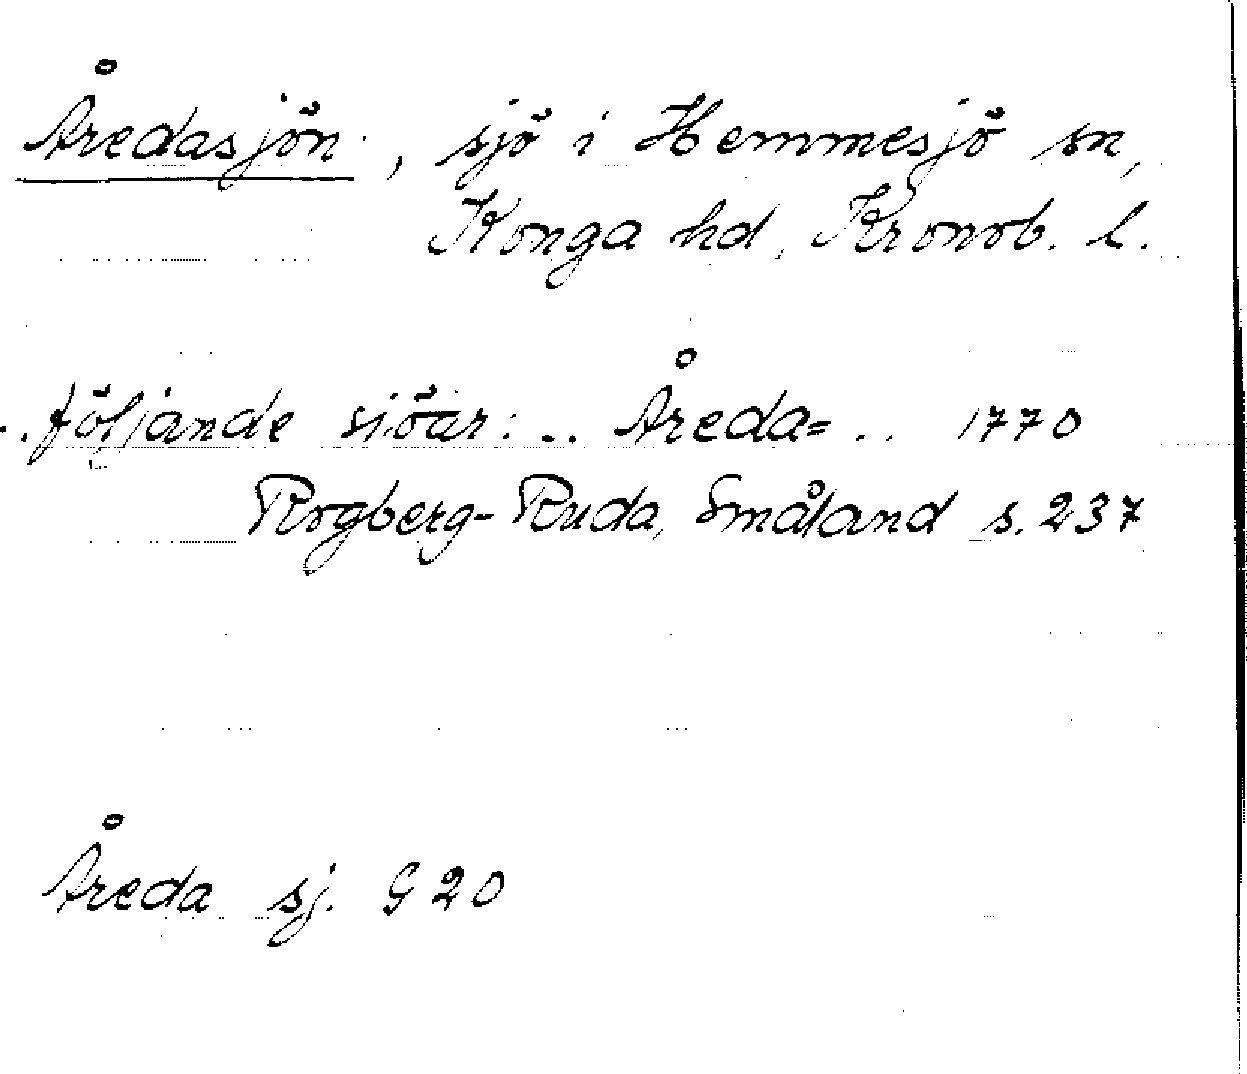 Åredasjön, sjö i Hemmesjö sn,
Konga hd, Kronob. l.
.. följande siöar: .. Åreda= .. 1770
Rogberg-Ruda, Småland s. 237
Åreda sj. G 20